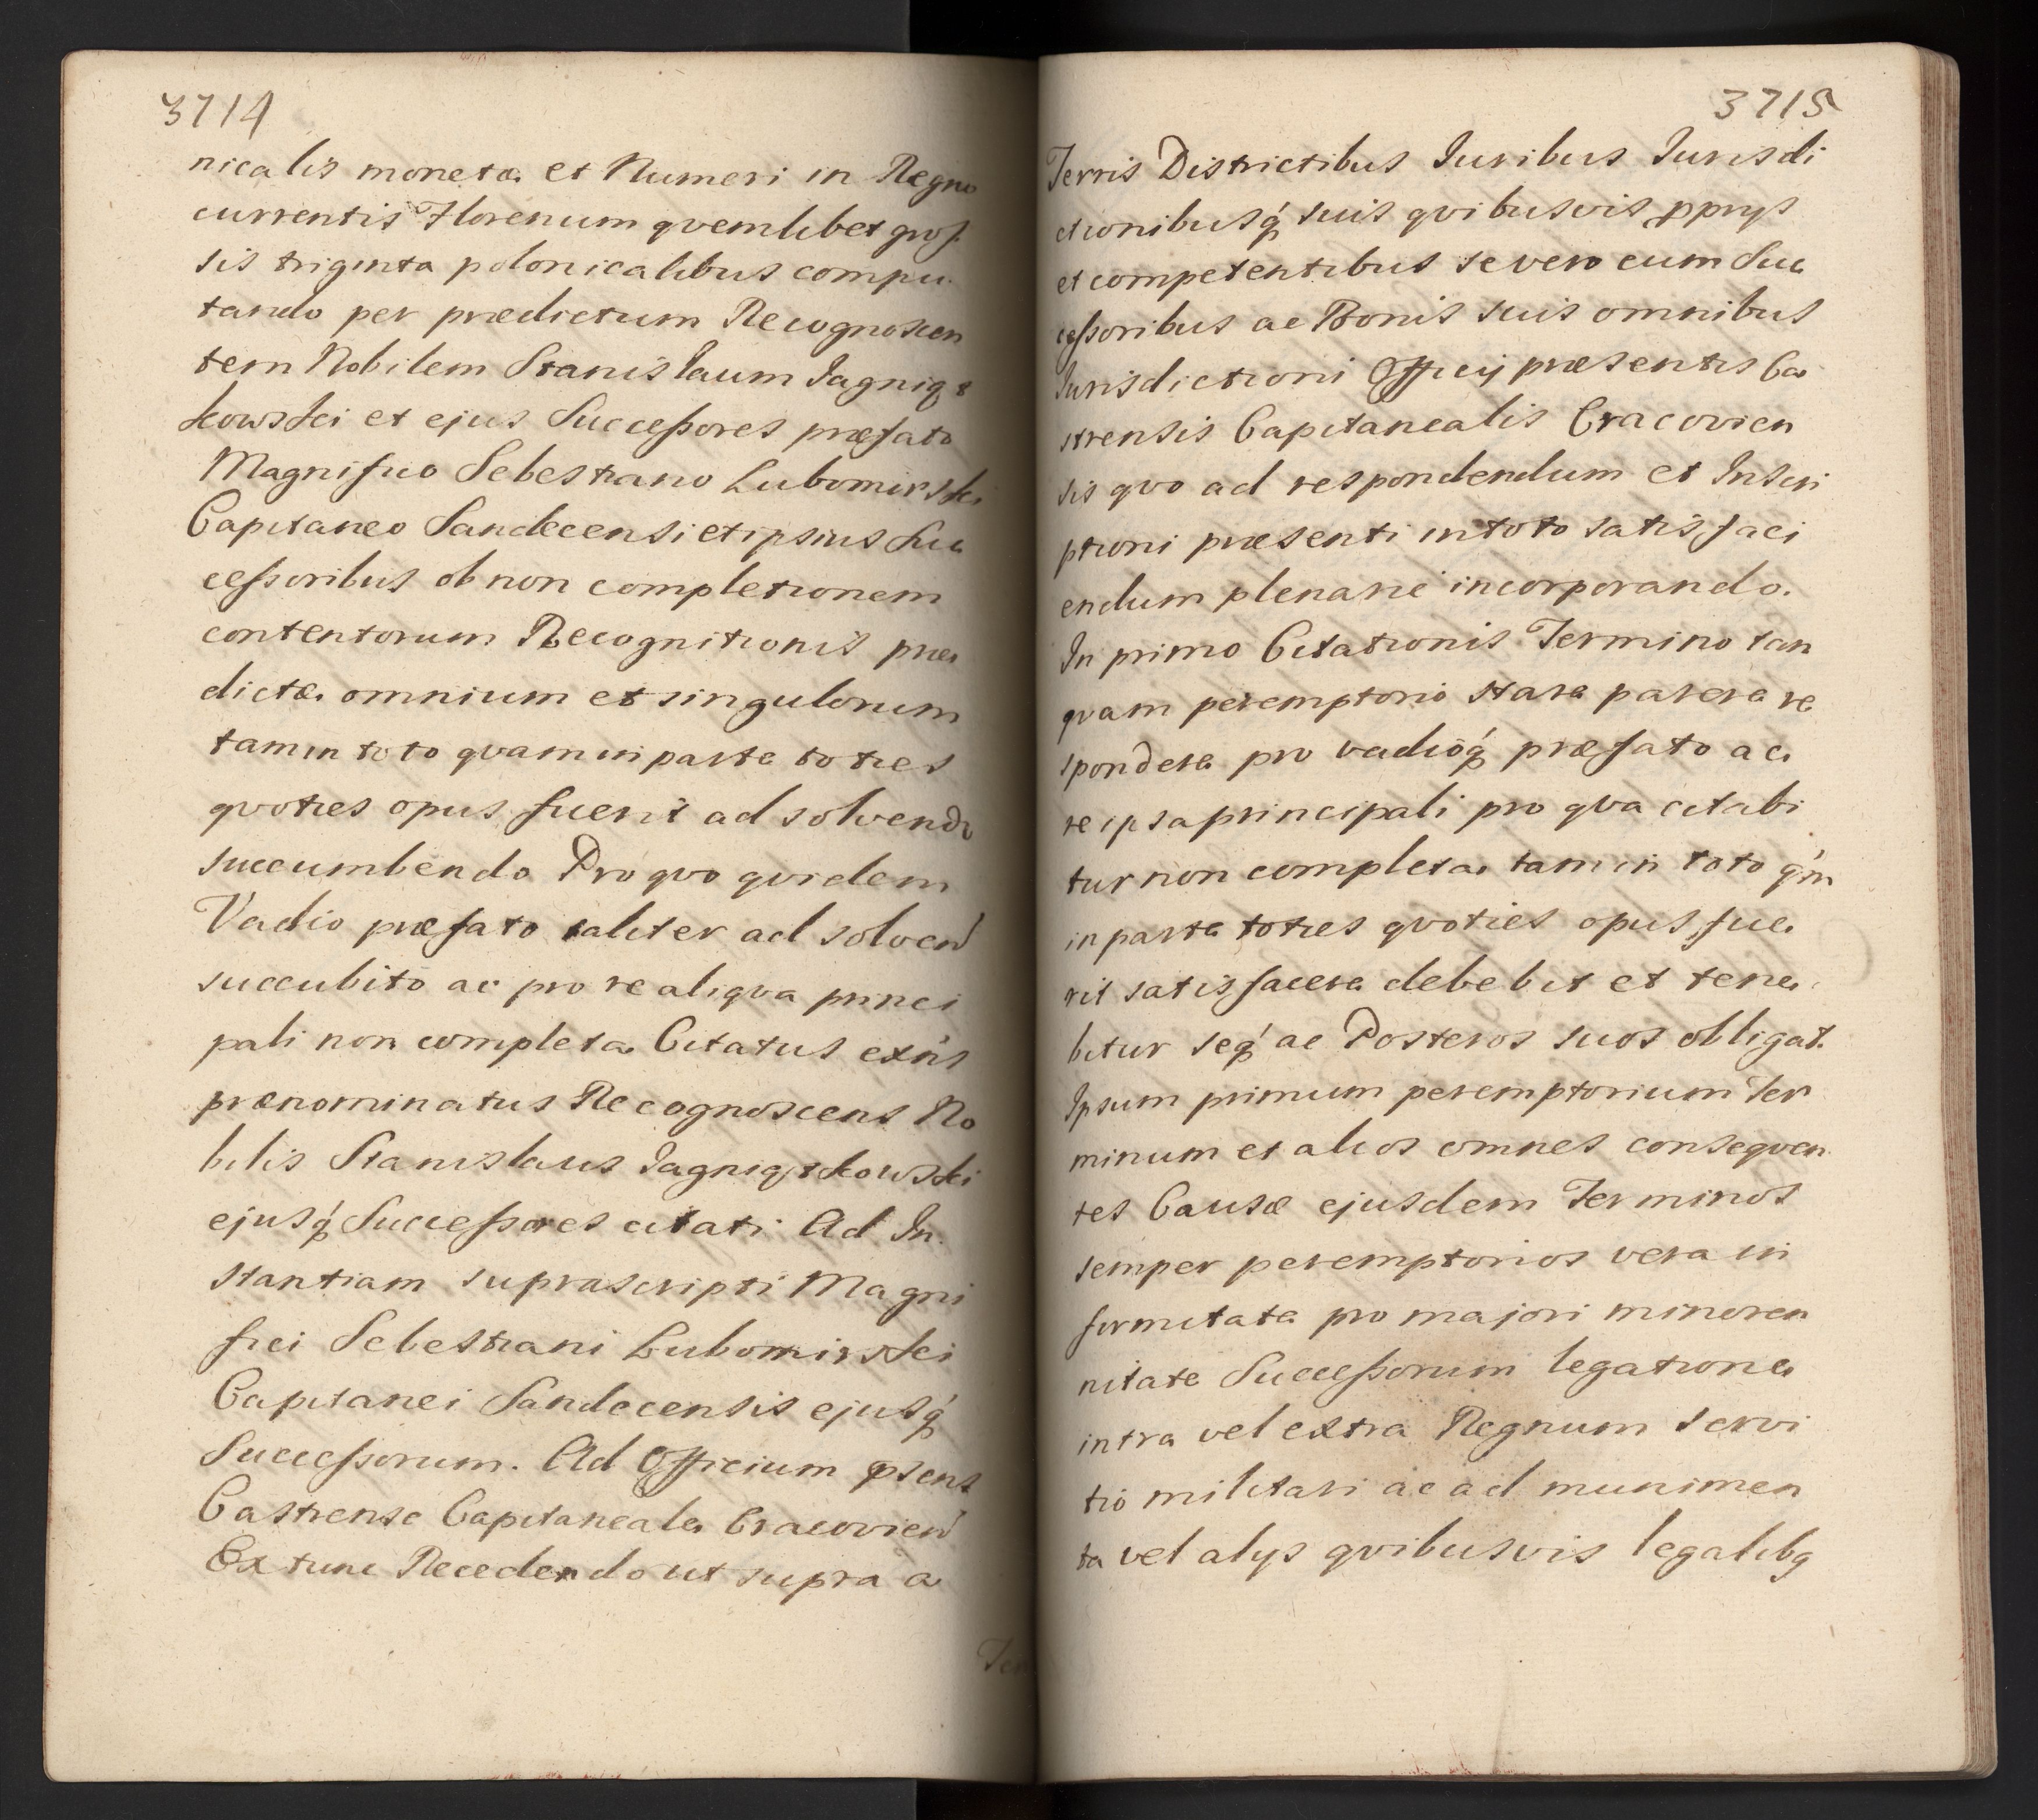 3714
nicalis monetæ et Numeri in Regno
currentis Florenum qvemlibet gros
sis triginta polonicalibus compu
tando per prædictum Recognoscen
tem Nobilem Stanislaum Jagniąt
kowski et ejus Successores præfato
Magnifico Sebestiano Lubomirski
Capitaneo Sandecensi et ipsius Suc
cessoribus ob non completionem
contentorum Recognitionis præ
dictæ omnium et singulorum
tam in toto qvam in parte toties
qvoties opus fuerit ad solvendũ
succumbendo Pro qvo qvidem
Vadio præfato taliter ad solven̄
succubito ac pro re aliqva princi
pali non completa Citatus exñs
prænominatus Recognoscens No
bilis Stanislaus Jagniątkowski
ejusq́ Successores citati Ad In
stantiam suprascripti Magni
fici Sebestiani Lubomirski
Capitanei Sandecensis ejusq́
Successorum. Ad Officium p̃sens
Castrense Capitaneale Cracovien̄
Ex tunc Recedendo ut supra a
Ter
3715
Terris Districtibus Juribus Jurisdi
ctionibusq́ suis qvibusvis ꝓprys
et competentibus se vero cum Suc
cessoribus ac Bonis suis omnibus
Jurisdictioni Officij præsentis Ca
strensis Capitanealis Cracovien
sis qvo ad respondendum et Inscri
ptioni præsenti in toto satisfaci
endum plenarie incorporando.
In primo Citationis Termino tan
qvam peremptorio stare parere re
spondere pro vadioq́ præfato ac
re ipsa principali pro qva citabi
tur non completa tam in toto q́m
in parte toties qvoties opus fue
rit satisfacere debebit et tene
bitur seq́ ac Posteros suos obligat.
Ipsum primum peremptorium Ter
minum et alios omnes conseqven
tes Causæ ejusdem Terminos
semper peremptorios vera in
firmitate pro majori minoren
nitate Successorum legatione
intra vel extra Regnum servi
tio militari ac ad munimen
ta vel alys qvibusvis legalibq